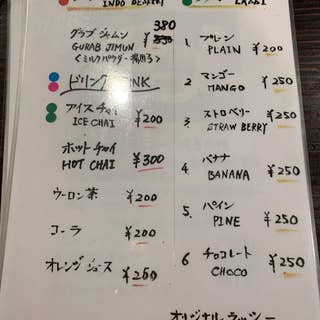 INDO DESSERT
380
グラブ ジャムン ¥350
GURAB JIMUN
<ミルクパウダー揚団子>
ドリンク DRINK
アイスチャイ
ICE CHAI ¥200
ホットチャイ
HOT CHAI ¥300
ウーロン茶 ¥200
コーラ ¥200
オレンジジュース ¥250
LASSI
1. プレーン
PLAIN ¥200
2. マンゴー
MANGO ¥250
3. ストロベリー
STRAW BERRY ¥250
4. バナナ
BANANA ¥250
5. パイン
PINE ¥250
6 チョコレート
CHOCO ¥250
オリジナルラッシー